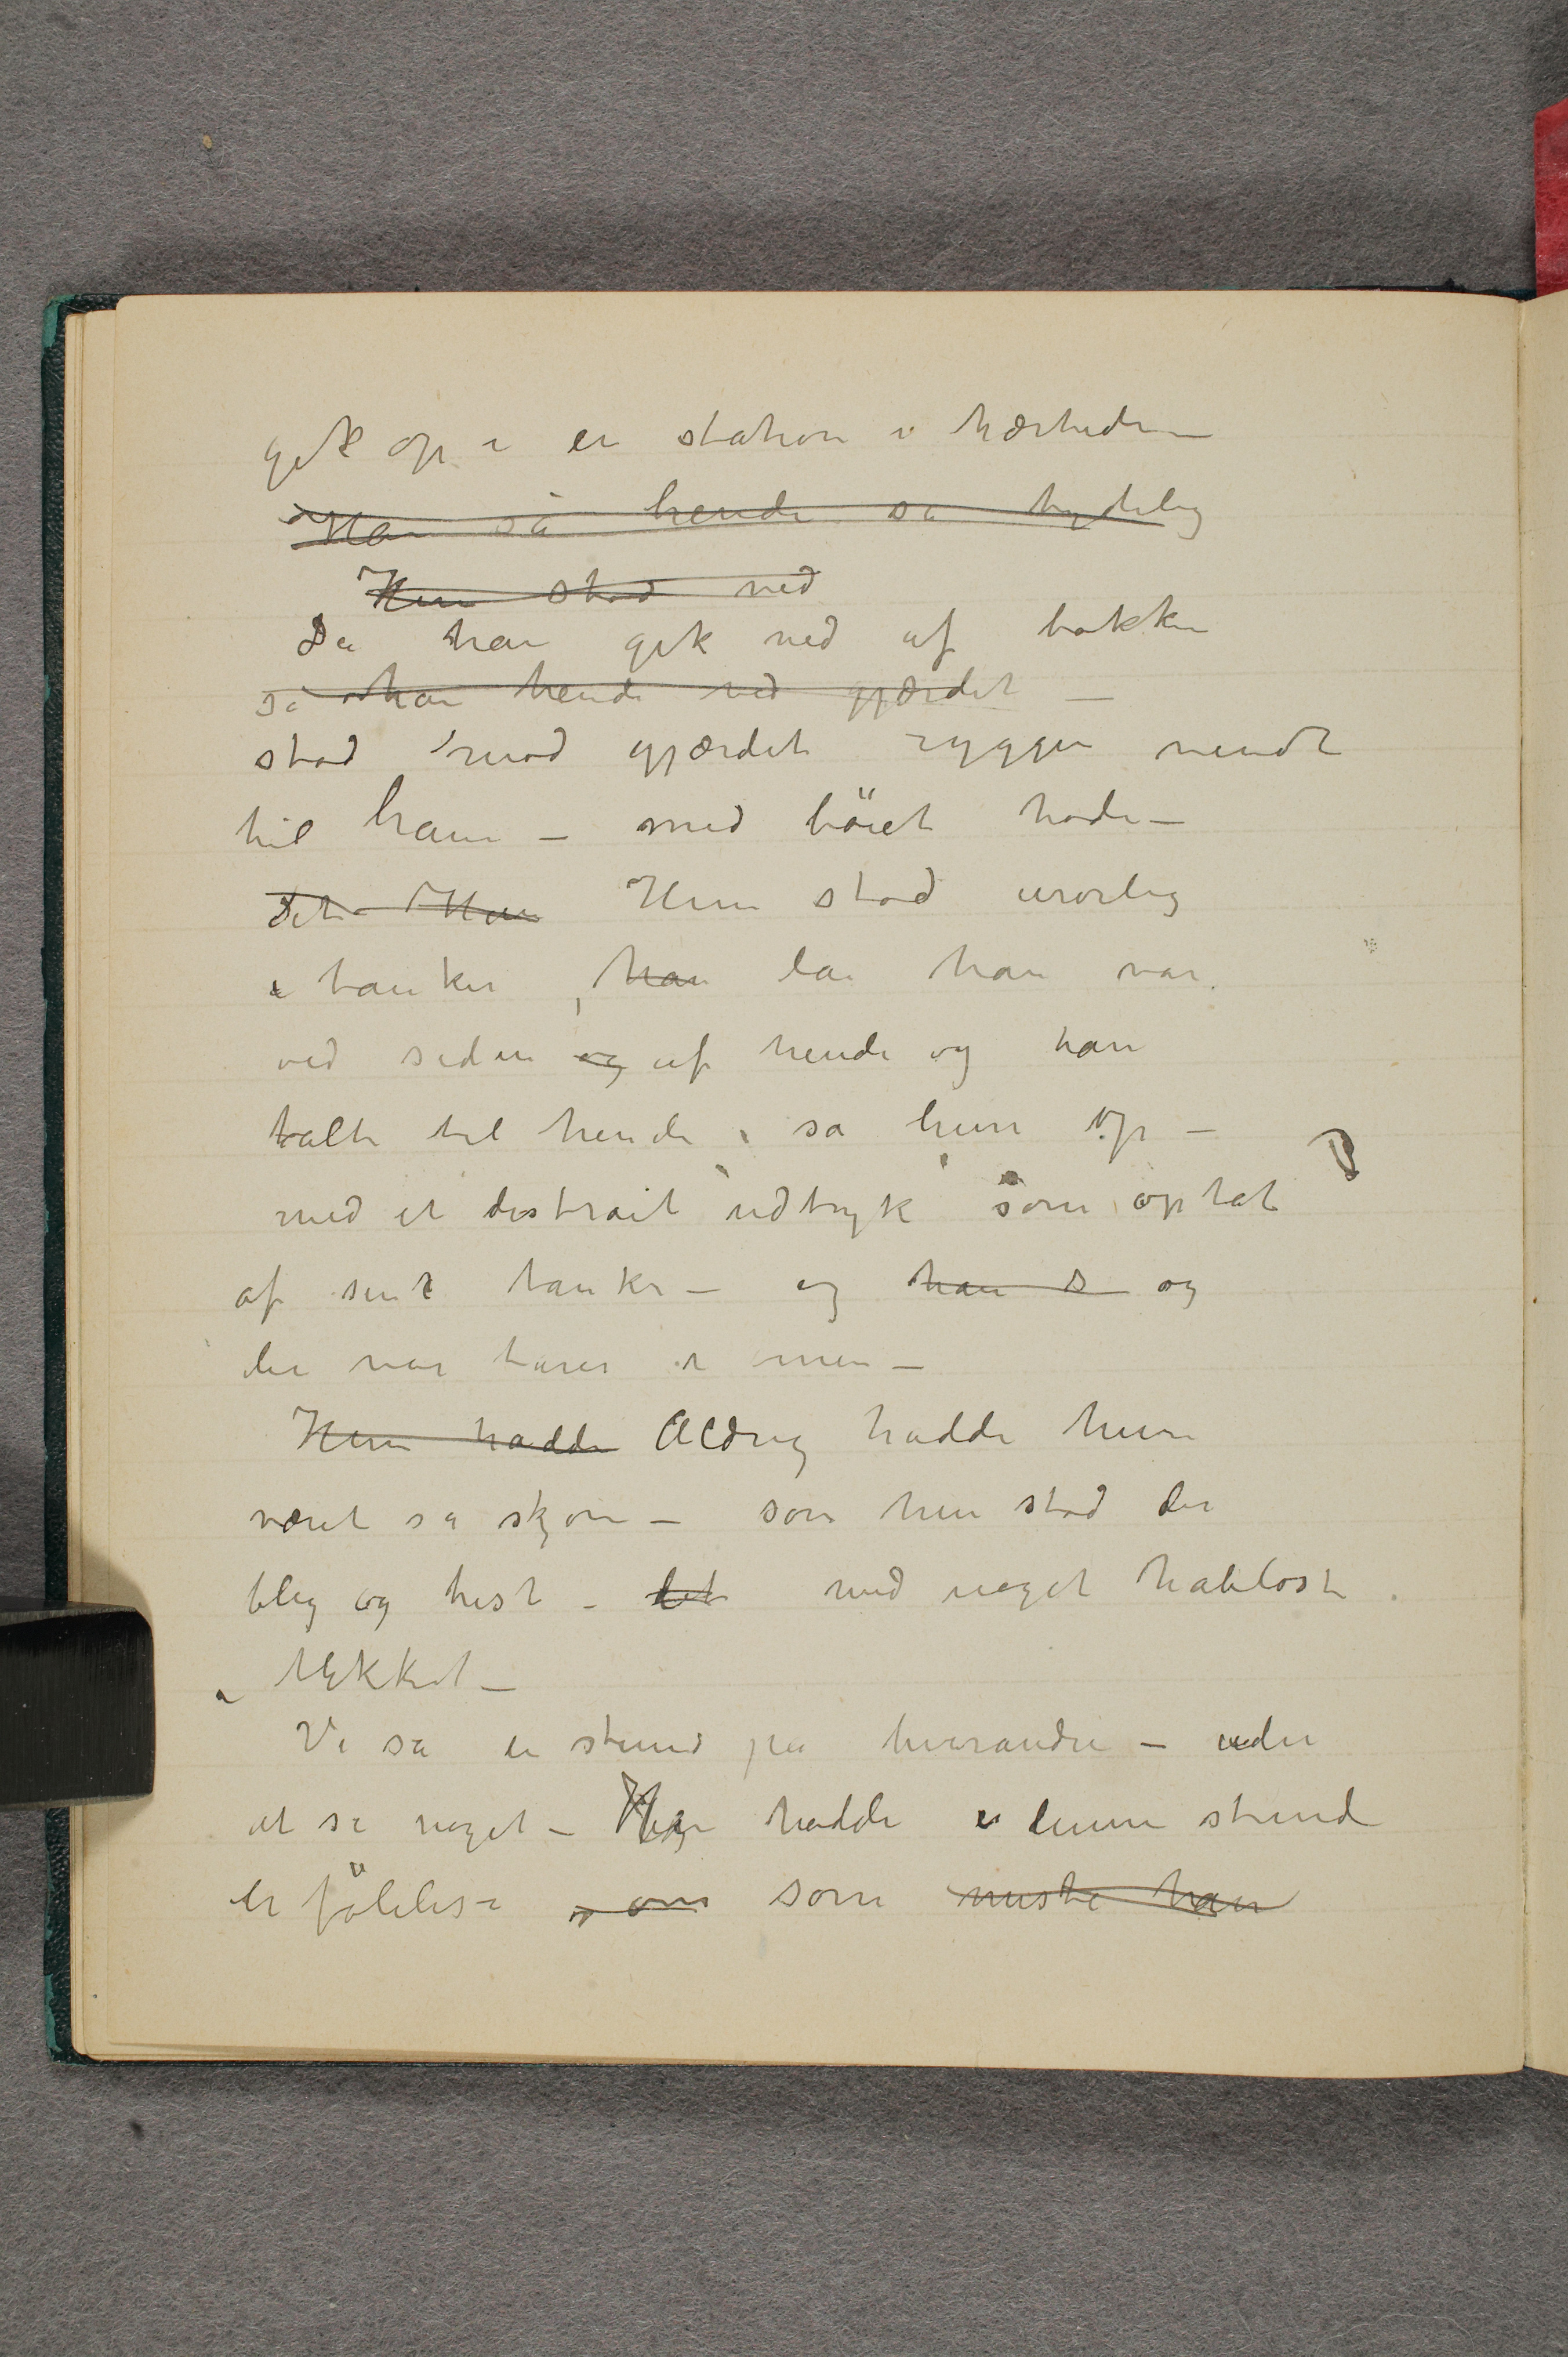 gik op i en station i nærheden –
Han så hende så tydelig
Hun stod ved
Da han gik ned af bakken
så han hende ved gjærdet –
stod mod gjærdet ryggen vendt
til ham – med böiet hode –
Det Hun Hun stod urørlig
i tanker, han da han var
ved siden og af hende og han
talte til hende, så hun op –
med et distrait udtryk som optat
af sine tanker – og han s og
der var tårer i men –
Hun hadde Aldrig hadde hun
været så skjøn – som hun stod der
bleg og trist – det med noget håbløst
i blikket –
Vi så en stund på hverandre – uden
at si noget – Han hadde i denne stund
en fölelse om som mistet han